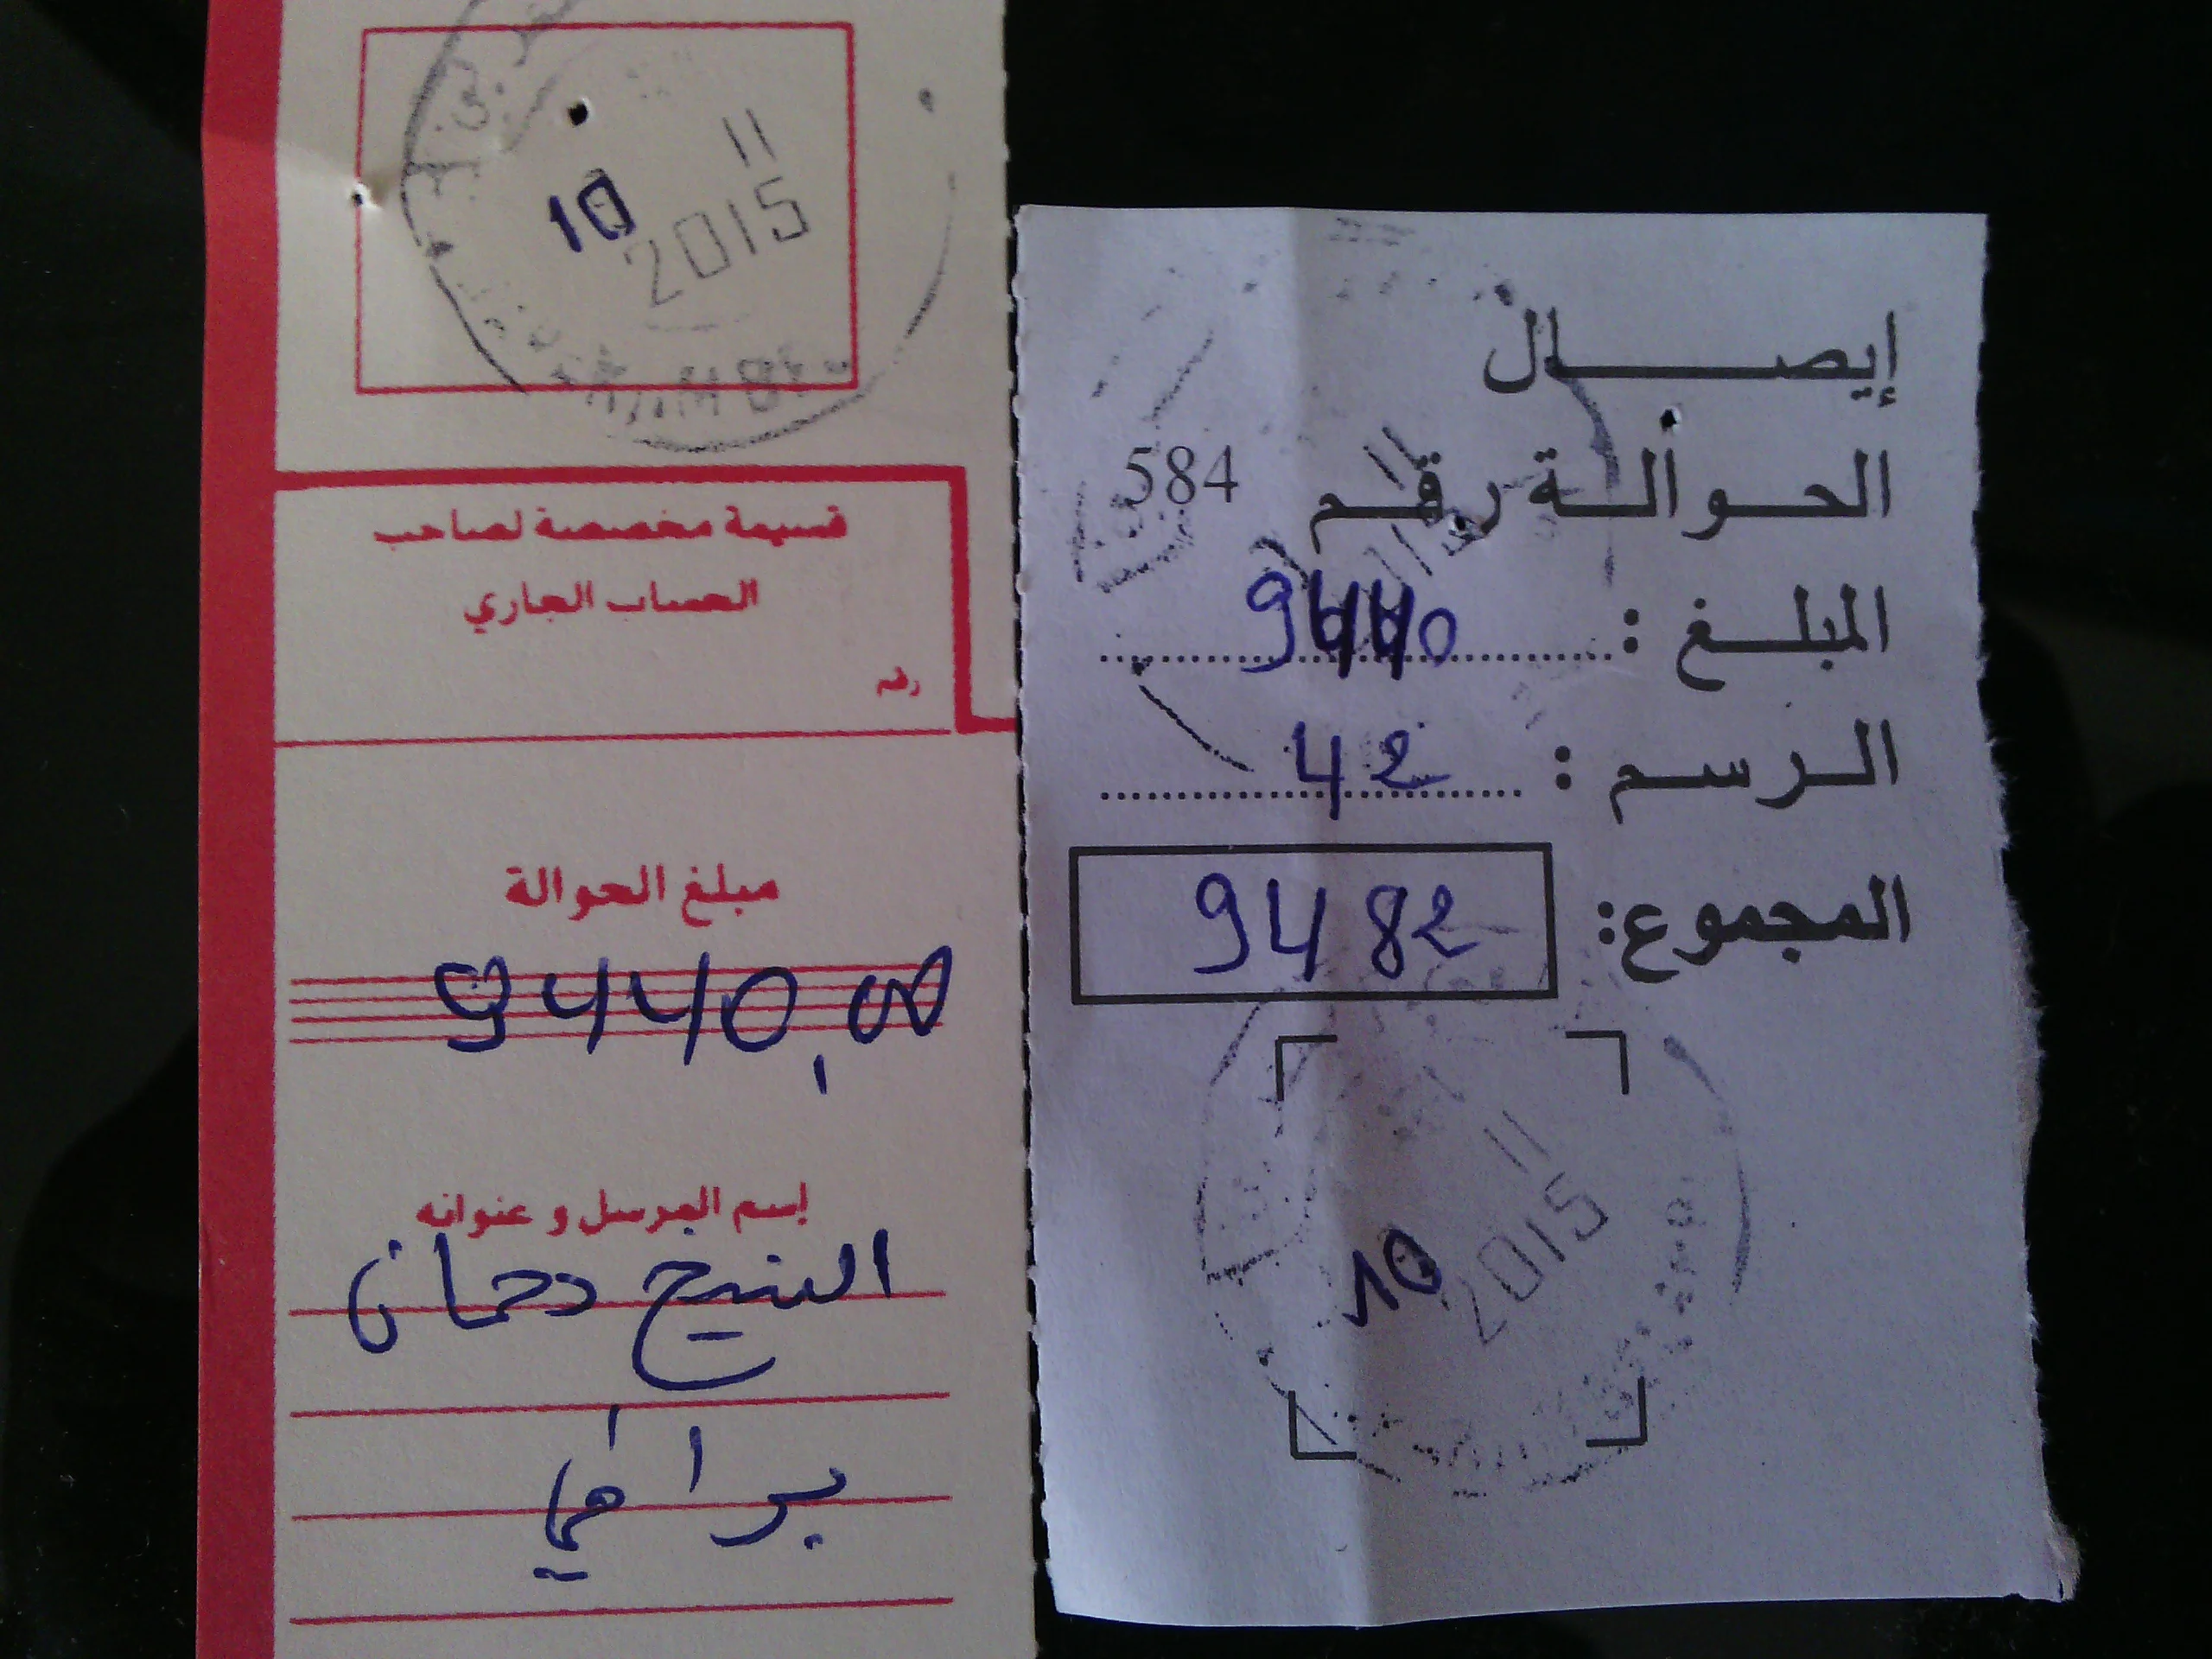 11
10
2015
قسيمة مخصصة لصاحب
الحساب الجاري
رقم
مبلغ الحوالة
9440,00
إسم المرسل و عنوانه
الشيخ دحمان
براهمي
إيصال
الحوالة رقم 584
المبلغ : 9440
الرسم : 42
المجموع: 9482
11
10
2015